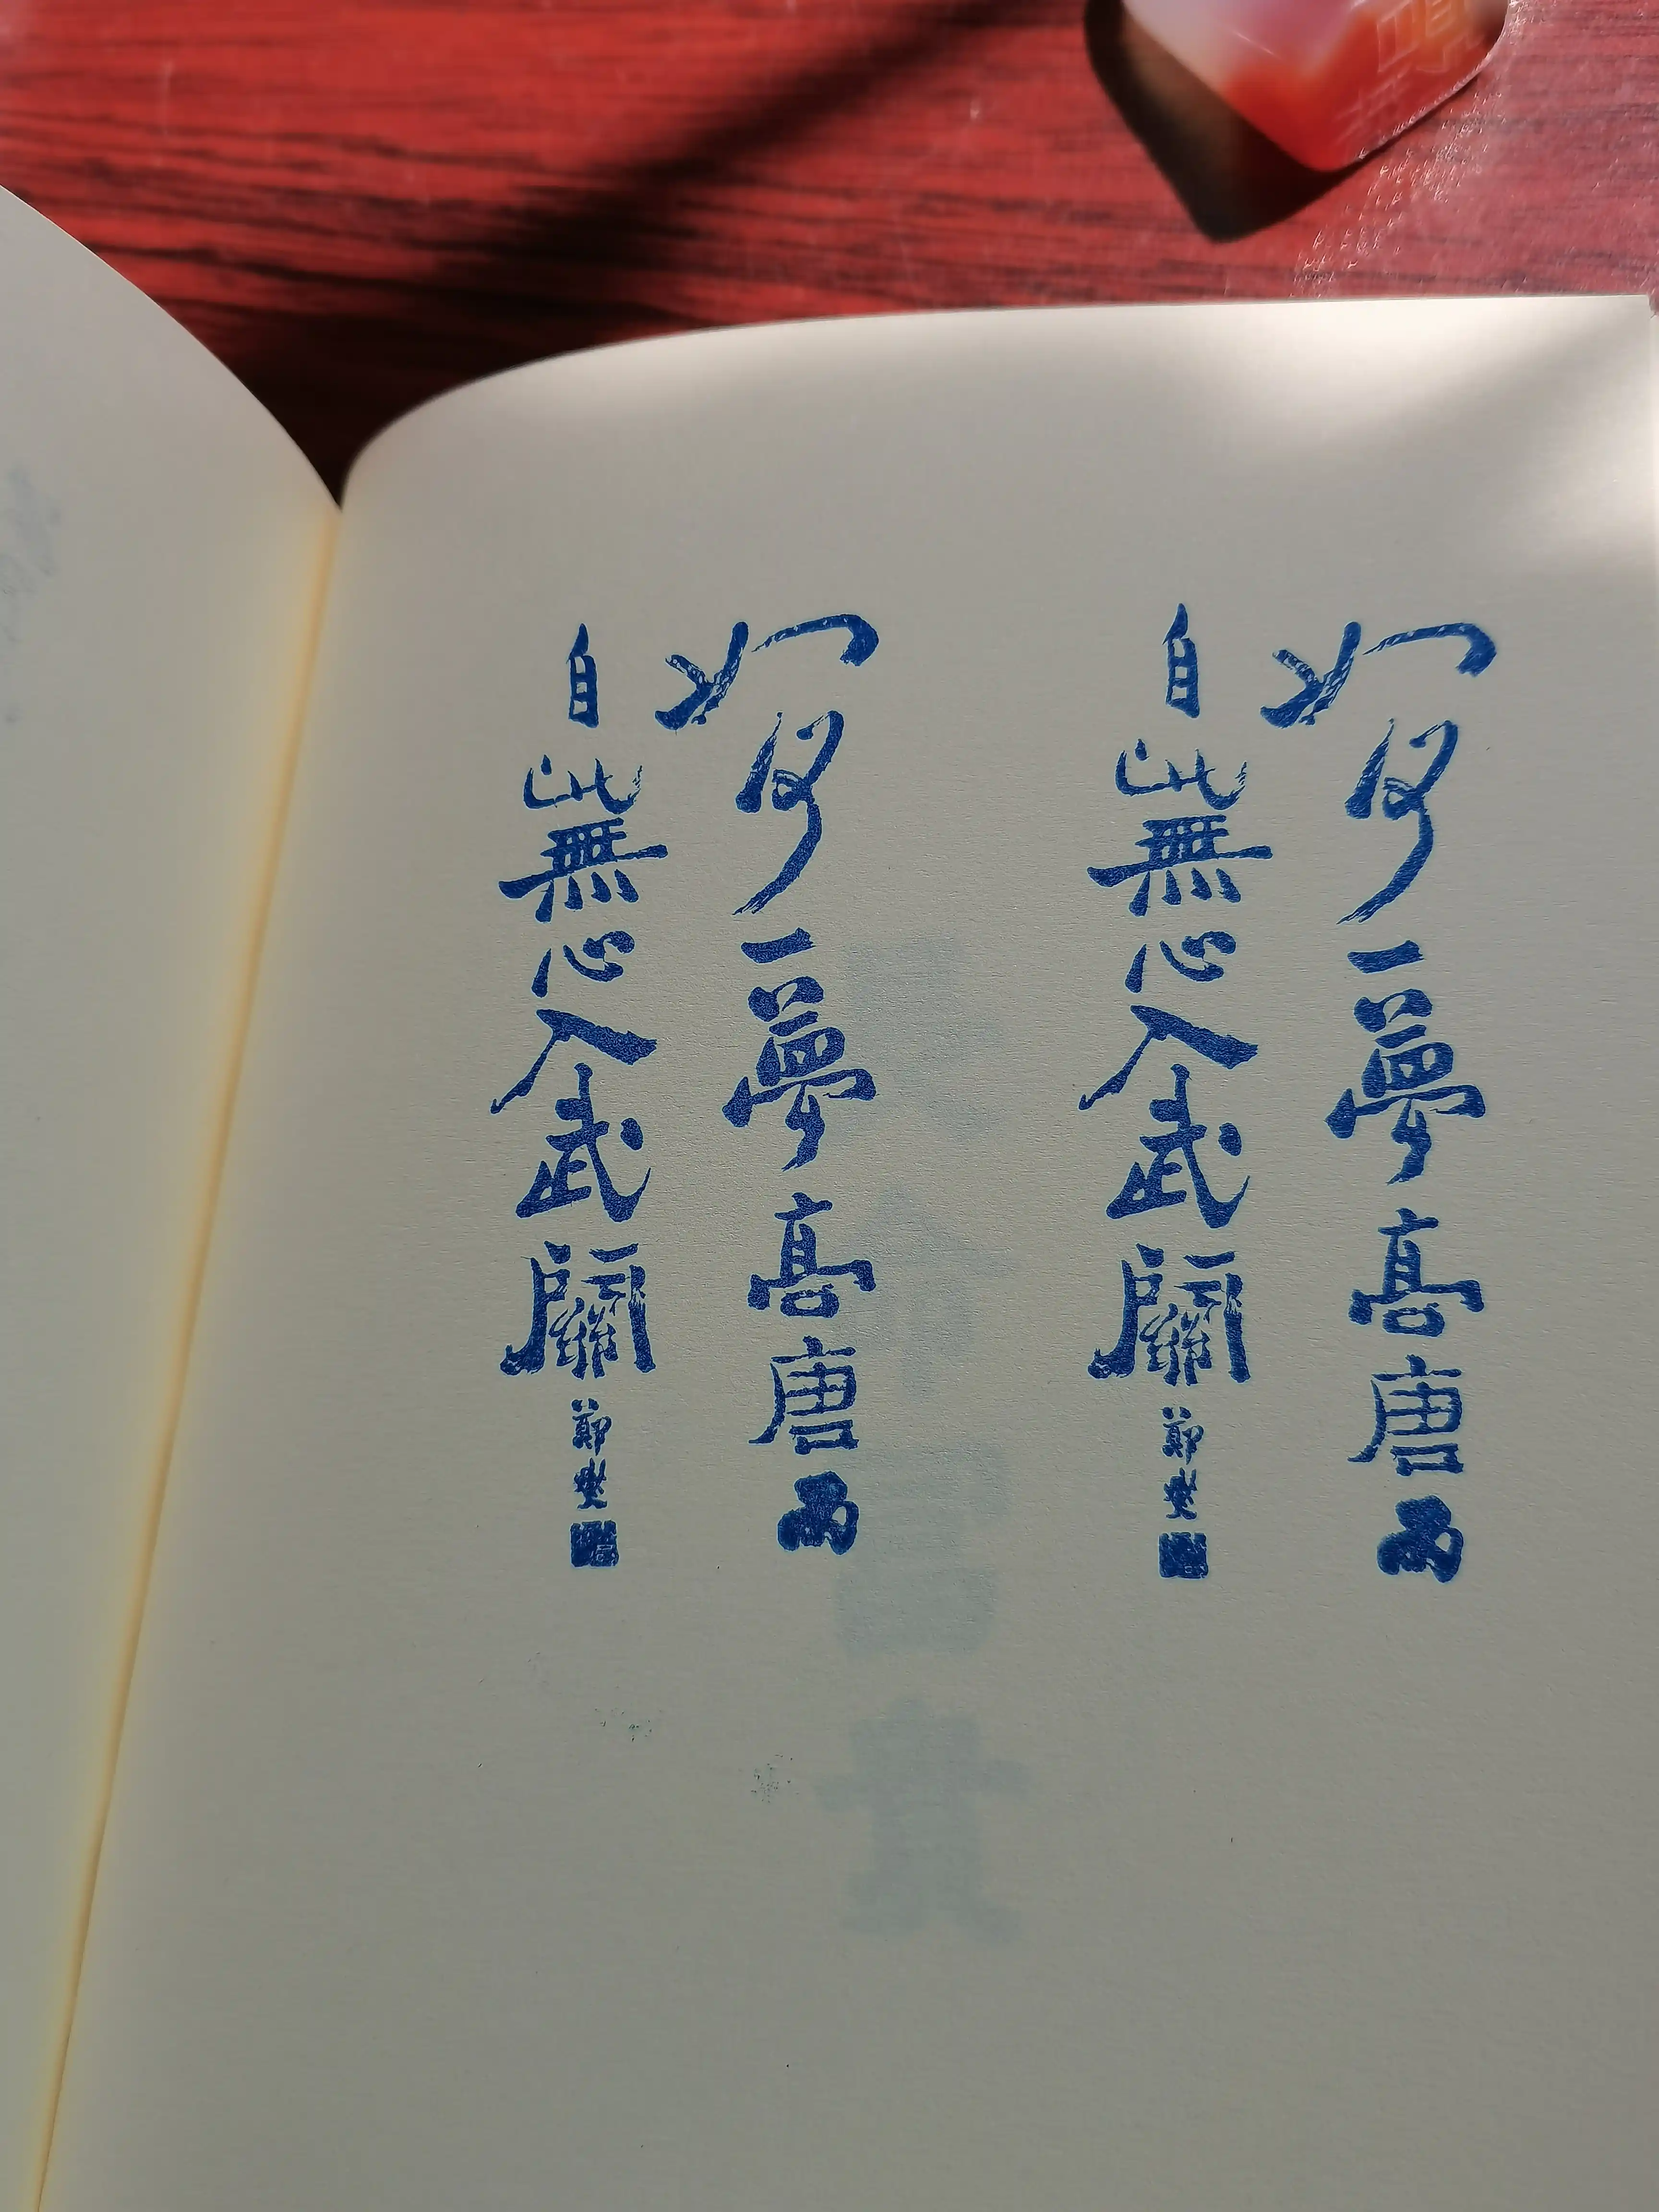 如何一夢高唐雨
自此無心入武關 鄭燮
如何一夢高唐雨
自此無心入武關 鄭燮